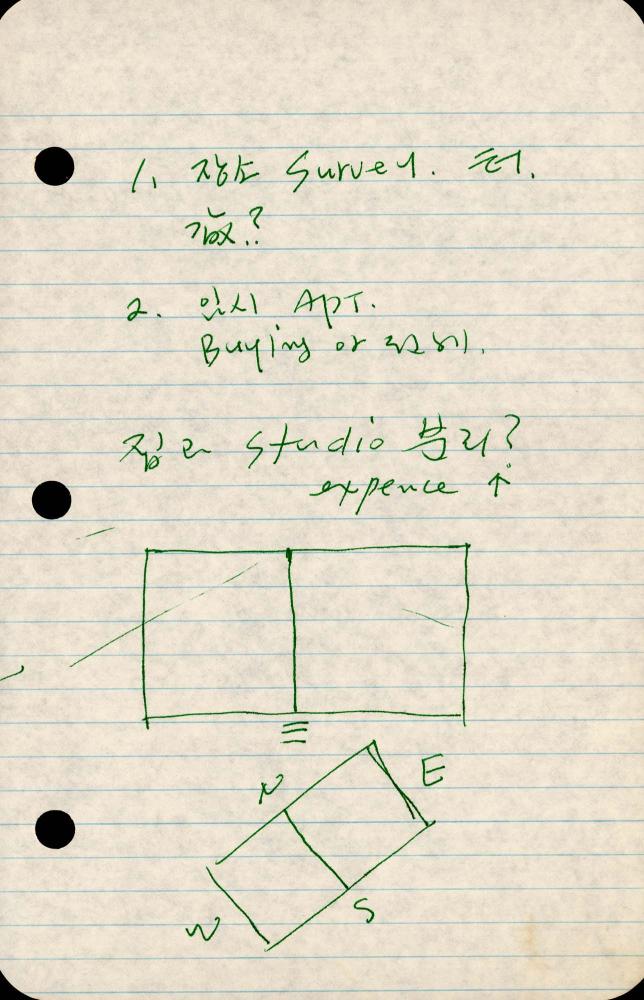 1. 장소 Survey. 터.
?
2. 임시 Apt.
Buying or 전세.
집과 Studio 분리?
expence ↑
N
E
W
S